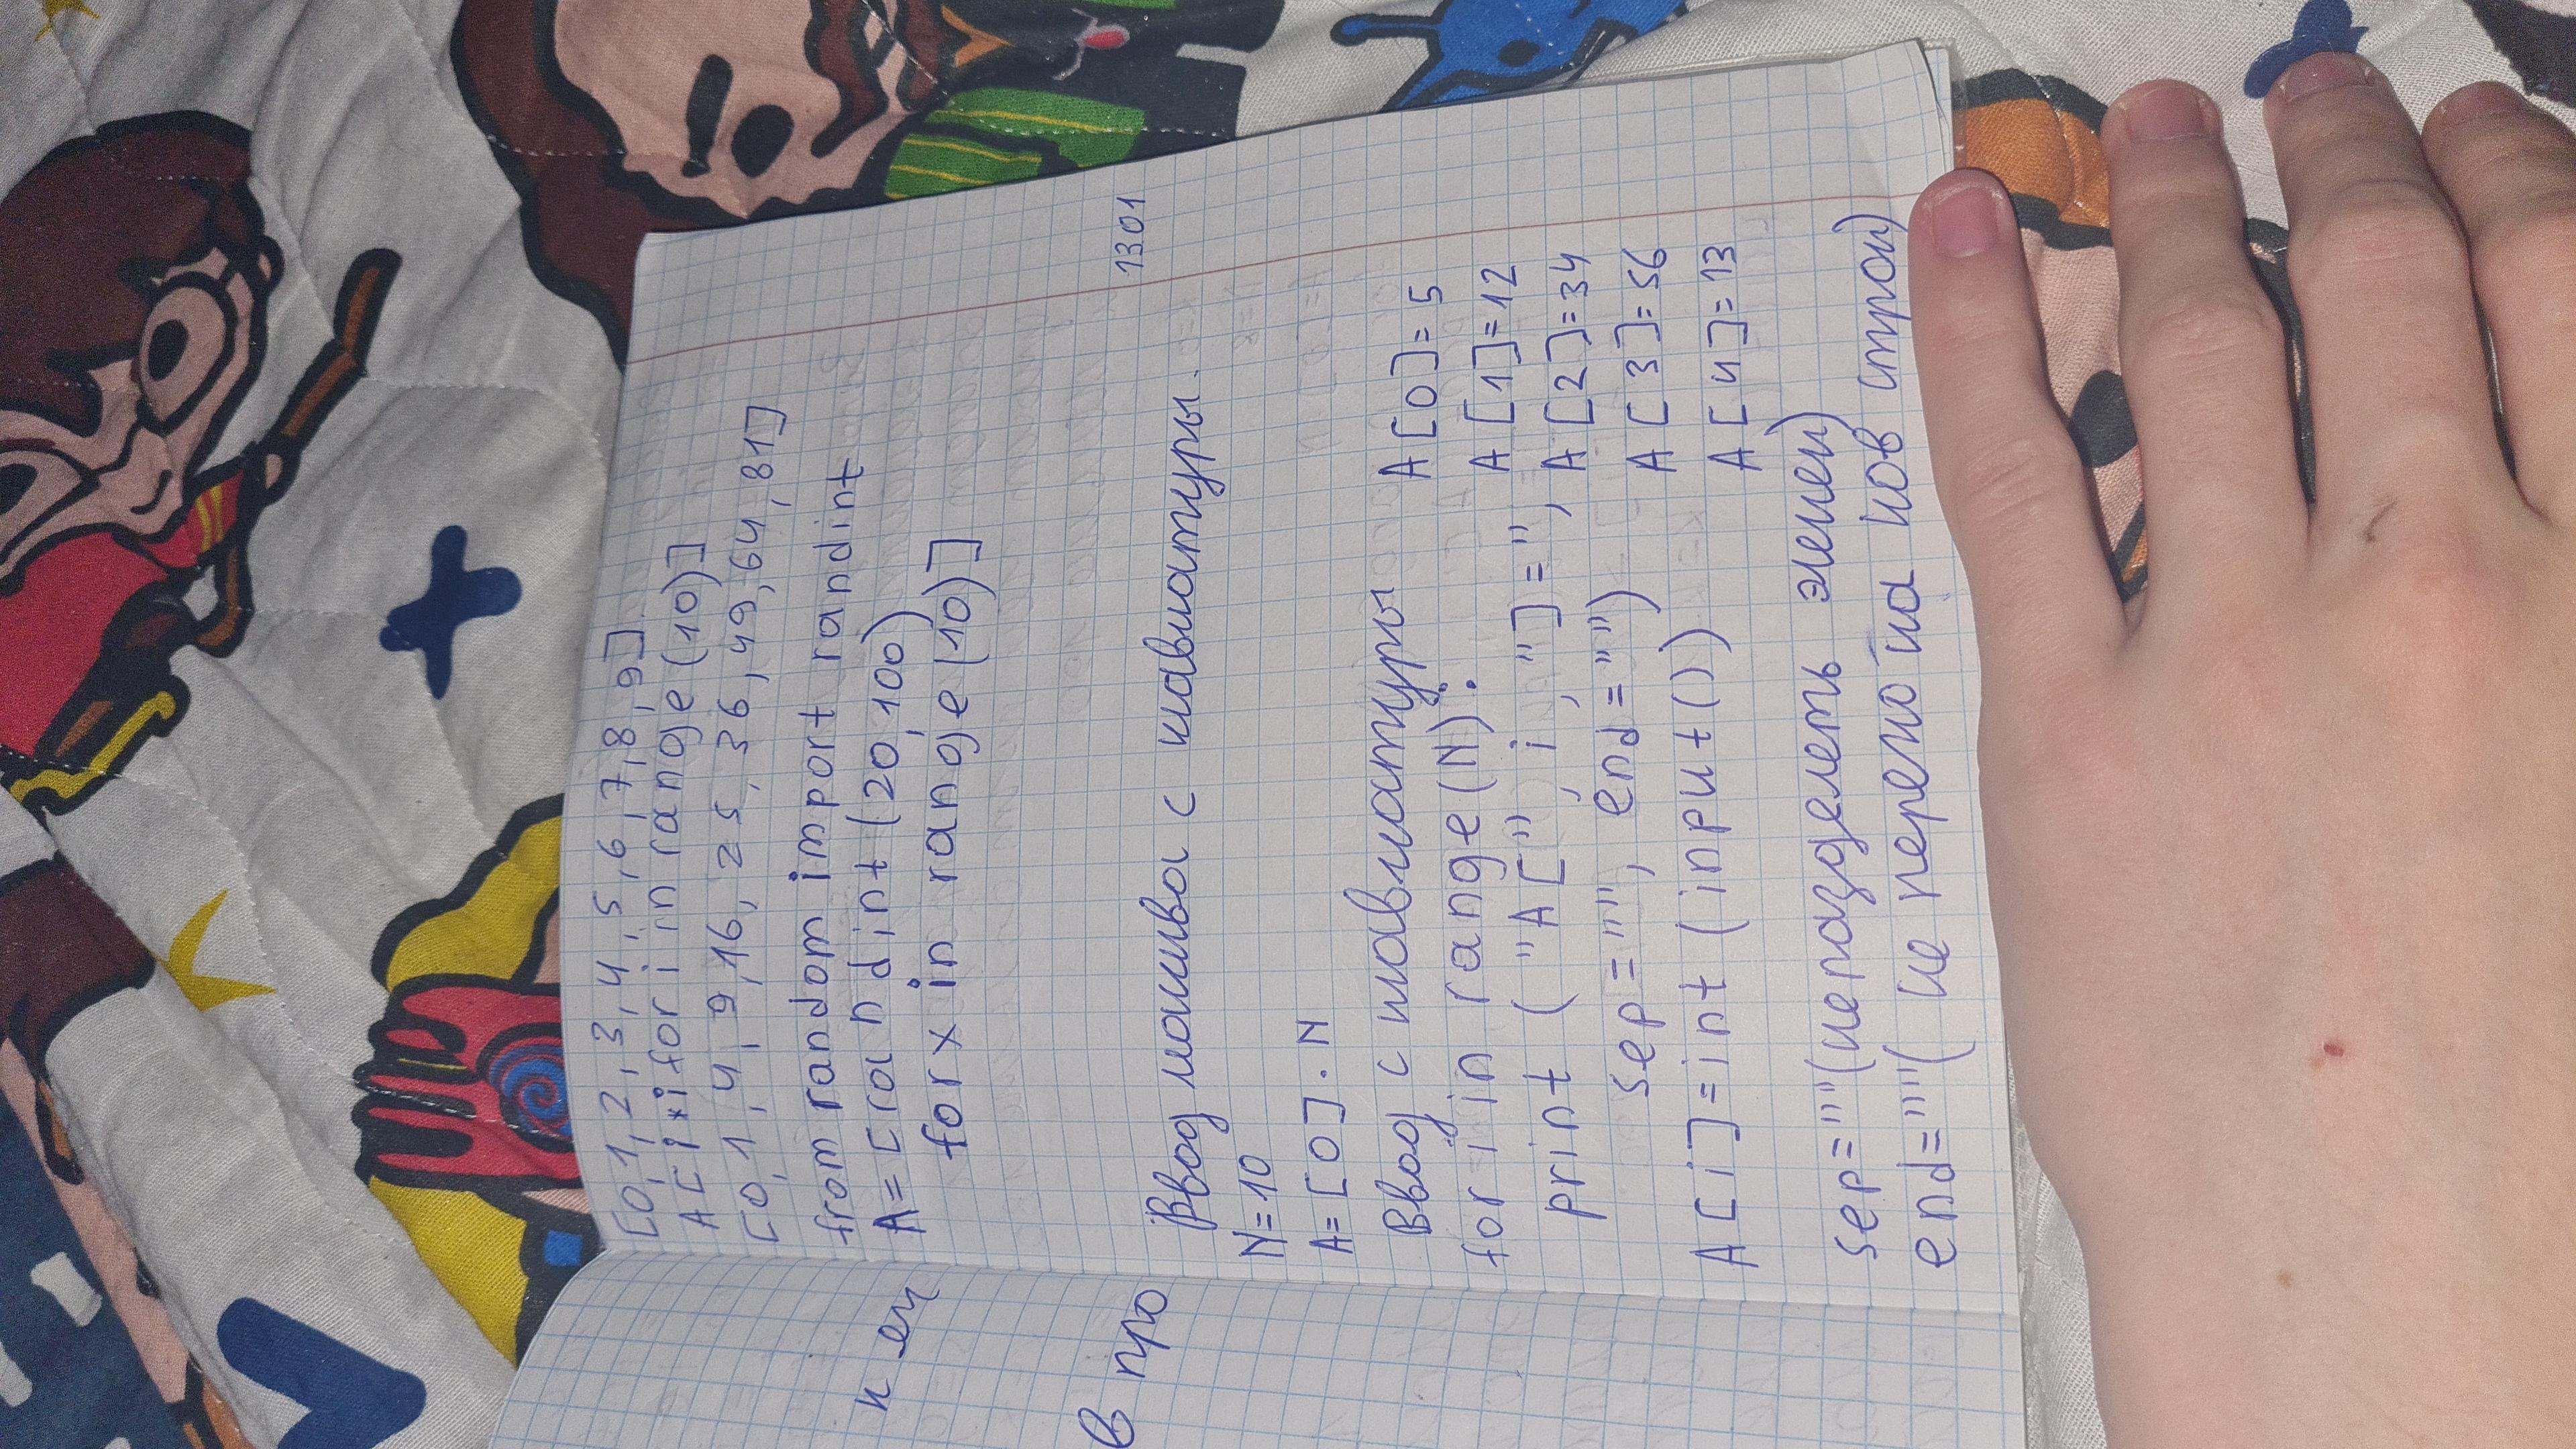 [0,1,2,3,4,5,6,7,8,9]
A[i*i for i in range(10)]
[0,1,4,9,16,25,36,49,64,81]
from random import randint
A=[randint(20,100)
for x in range(10)]
13 01
Ввод массива с клавиатуры.
N=10
A=[0].N
Ввод с клавиатуры A[0]=5
for i in range(N): A[1]=12
print ("A[", i, "]=", A[2]=34
sep="", end="") A[3]=56
A[i]=int(input()) A[4]=13
sep=""(не разделеть элемен)
end=""( не перехо на нов строи)
в про